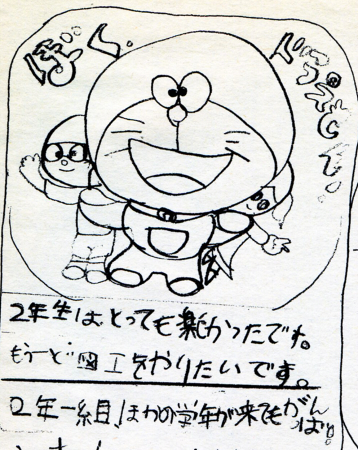 ぼく
ドラえもん
2年生は、とっても楽かったです。
もう一ど図工をやりたいです。
2年一組、ほかの学年が来てもがん